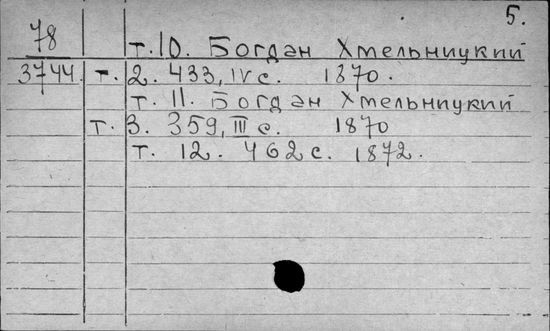 5.
78 т. 10. Богдан Хмельницкий
3744. т. 2. 433, IV с. 1870.
т. 11. Богдан Хмельницкий
т. 3. 359, III с. 1870
т. 12. 462 с. 1872.